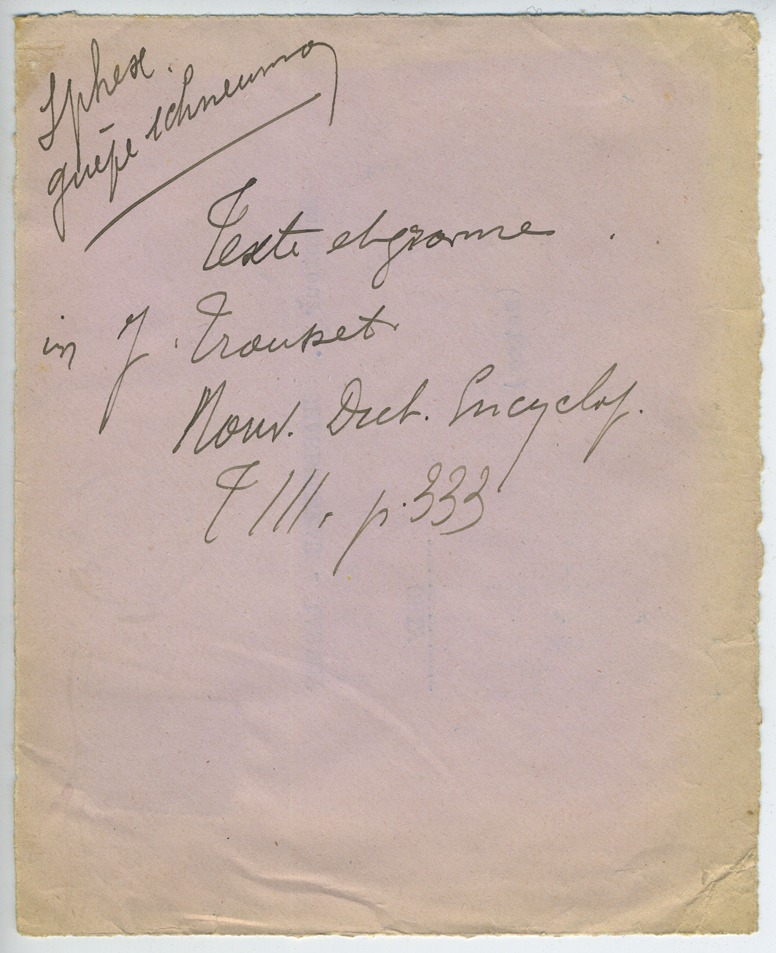 Sphex.
guêpe ichneumon
Texte et gravure
in J. Trousset.
Nouv. Dict. Encyclop.
T III. p. 333